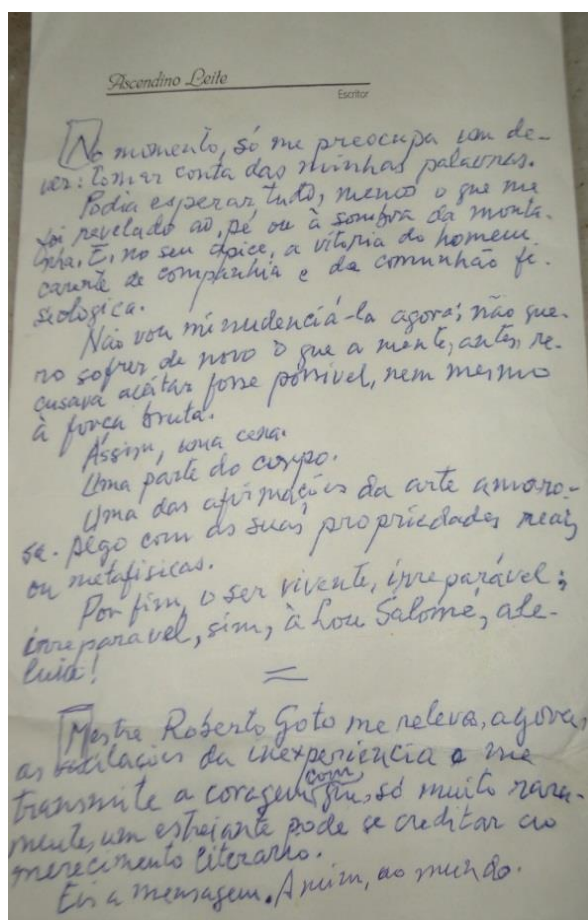 Ascendino Leite
Escritor
No momento, só me preocupa um de-
ver: tomar conta das minhas palavras.
Podia esperar tudo, menos o que me
foi revelado ao pé ou à sombra da monta-
nha. E, no seu ápice, a vitória do homem
carente de companhia e da comunhão fi-
siologica.
Não vou minudenciá-la agora; não que-
ro sofrer de novo o que a mente, antes, re-
cusava aceitar fosse possivel, nem mesmo
à força bruta.
Assim, uma cena.
Uma parte do corpo.
Uma das afirmações da arte amoro-
sa. pego com as suas propriedades reais
ou metafisicas.
Por fim, o ser vivente, irreparável;
irreparavel, sim, à Lou Salomé, ale-
luia!
Mestre Roberto Goto me releva, agora,
as da inexperiencia e me
transmite a coragem com que, só muito rara-
mente, um estreiante pode se creditar ao
merecimento literario.
Eis a mensagem. Assim, ao mundo.